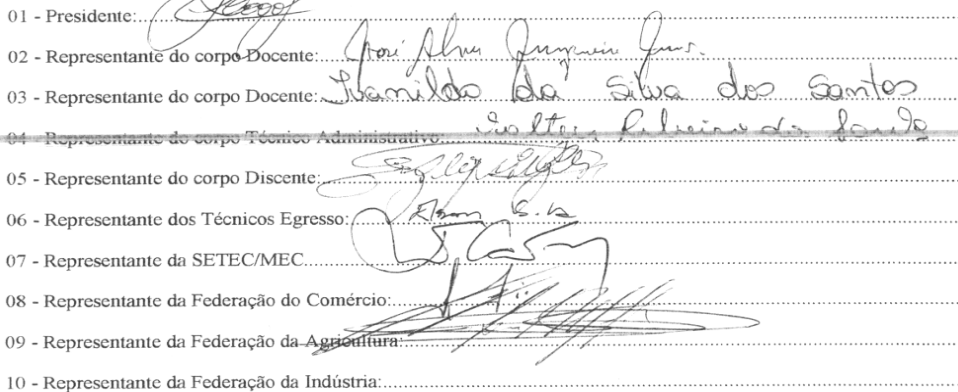 01 - Presidente:
02 - Representante do corpo Docente: José Alves
03 - Representante do corpo Docente: Ivanildo da Silva dos Santos
04 - Representante do corpo Técnico Administrativo:
05 - Representante do corpo Discente:
06 - Representante dos Técnicos Egresso:
07 - Representante da SETEC/MEC
08 - Representante da Federação do Comércio:
09 - Representante da Federação da Agricultura:
10 - Representante da Federação da Indústria: